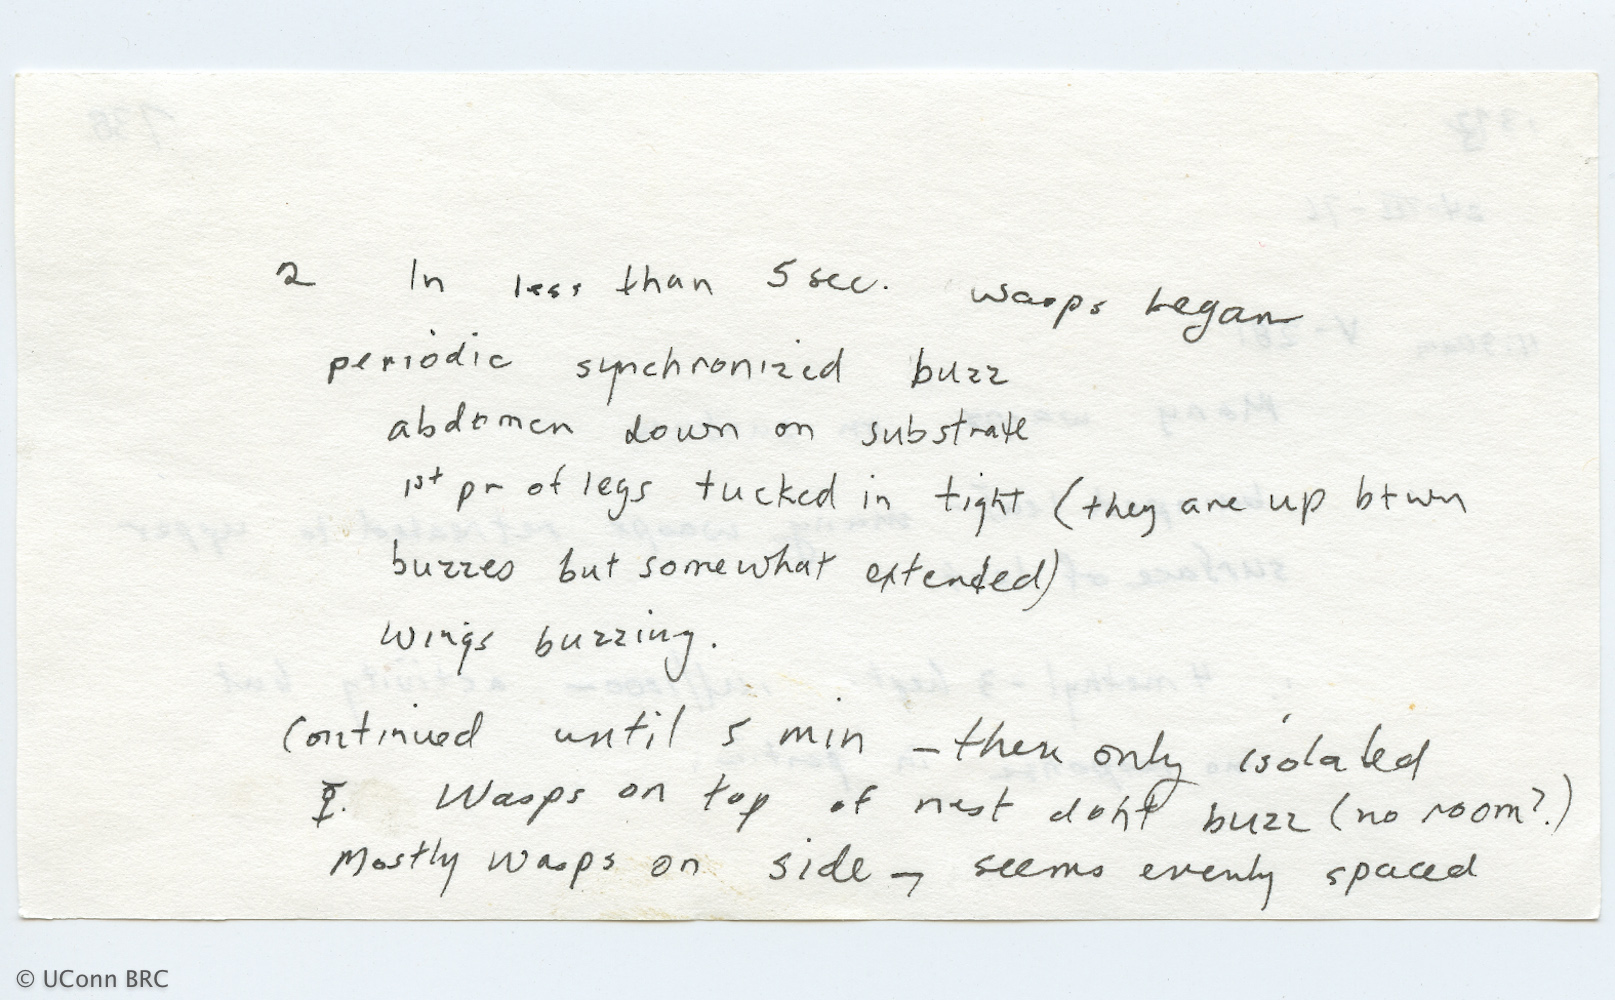 2 In less than 5 sec. wasps began
periodic synchronized buzz
abdomen down on substrate
1st pr of legs tucked in tight (they are up btwn
buzzes but somewhat extended)
wings buzzing.
Continued until 5 min – then only isolated
☿. Wasps on top of nest dont buzz (no room?.)
Mostly wasps on side – seems evenly spaced
© UConn BRC